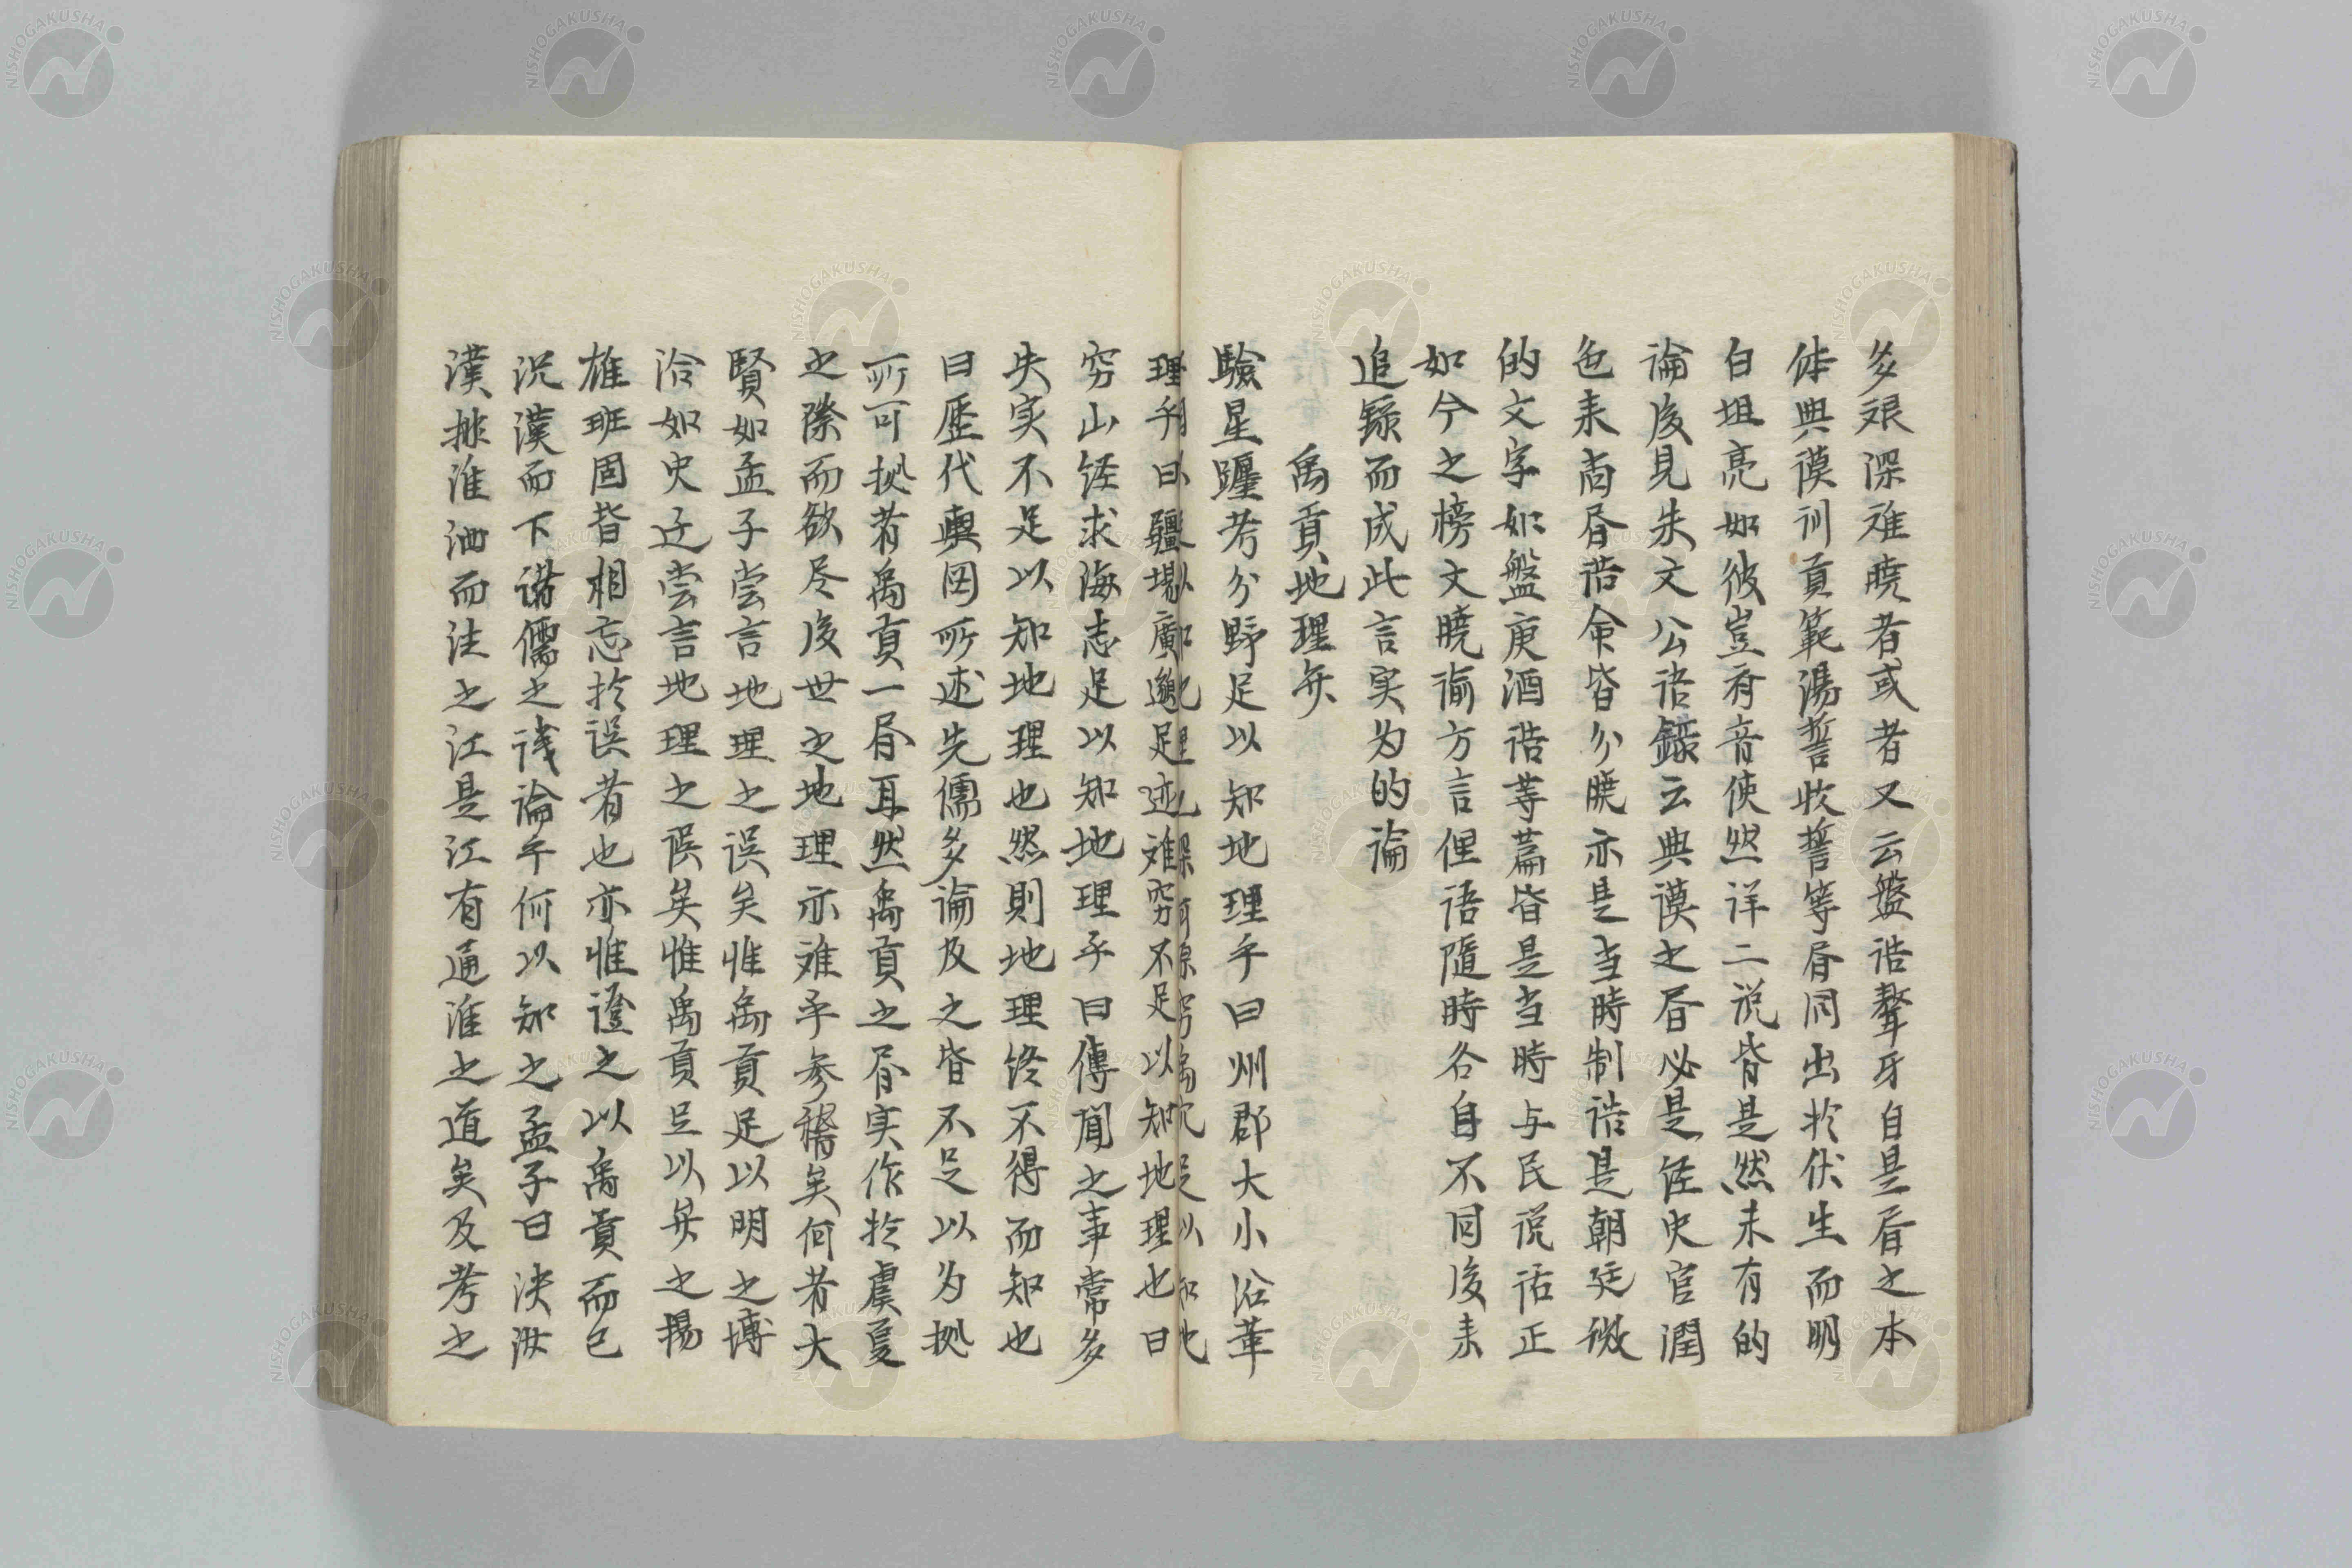 多艰深难曉者或者又云盤誥聱牙自是㫺之本
体典謨訓貢範湯誓牧誓等㫺同出於伏生而明
白坦亮如彼豈有音使然詳二说皆是然未有的
論後見朱文公语録云典謨之㫺必是侄史官潤
色来尚㫺誥命皆分曉亦是当時制誥是朝廷微
的文字如盤庚酒誥等萹皆是当時与民说话正
如今之榜文曉谕方言俚语隨時各自不同後来
追録而成此言実为的論
禹貢地理弁
驗星躔考分野足以知地理乎曰州郡大小沿革
理乎曰疆場廣邈足迹难穷不足以知地理也曰
穷山经求海志足以知地理乎曰傳聞之事常多
失实不足以知地理也然則地理终不得而知也
曰歴代輿図所述先儒多論及之皆不足以为拠
所可拠者禹貢一㫺耳然禹貢之㫺实作於虞夏
之際而欲尽後世之地理亦难乎参稽矣何者大
賢如孟子尝言地理之误矣惟禹貢足以明之博
洽如史迁尝言地理之误矣惟禹貢足以弁之揚
雄班固皆相忘於误者也亦惟證之以禹貢而已
况漢而下諸儒之議論乎何以知之孟子曰决汝
漢排淮泗而注之江是江有通淮之道矣及考之